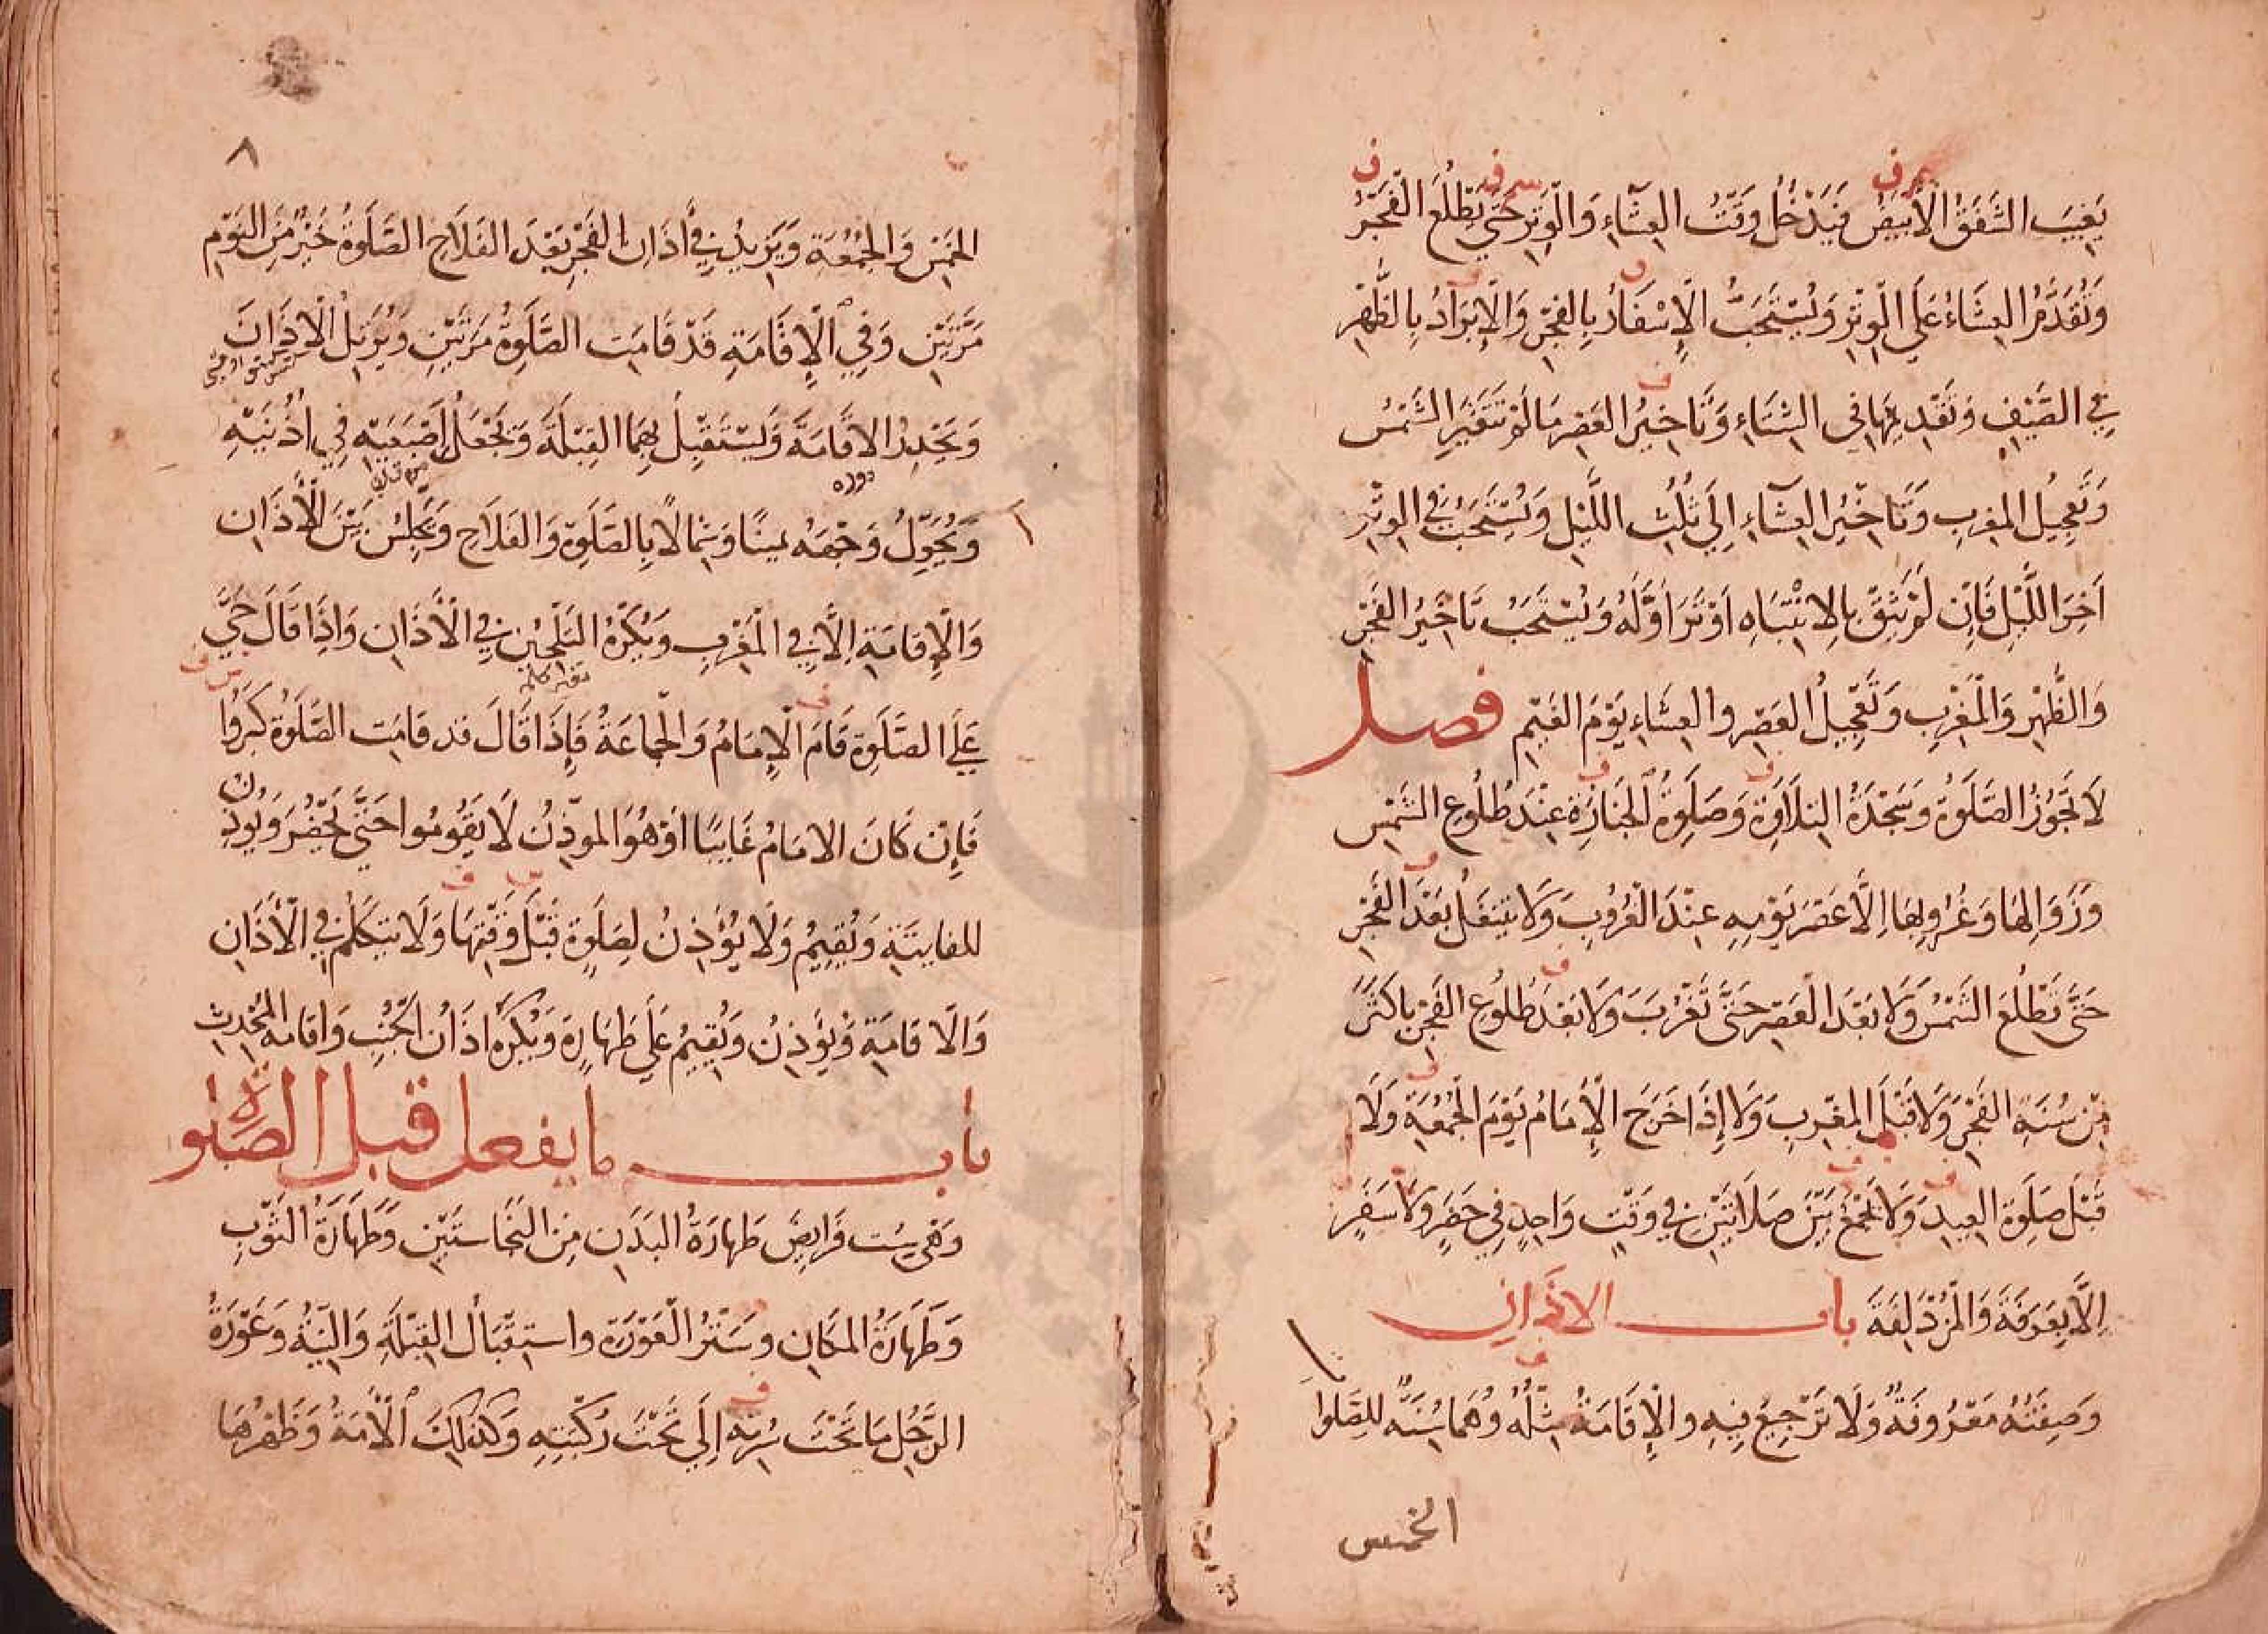 يَغِيبَ الشَّفَقُ الْأَبْيَضُ فَيَدْخُلُ وَقْتُ العِشَاءِ وَالْوِتْرِ حَتَّى يَطْلُعَ الْفَجْرُ
وَتُقَدَّمُ العِشَاءُ عَلَى الْوِتْرِ وَيُسْتَحَبُّ الْإِسْفَارُ بِالفَجْرِ وَالْإِبْرَادُ بِالظُّهْرِ
فِي الصَّيْفِ وَتَقْدِيمُهَا فِي الشِّتَاءِ وَتَاخِيرُ العَصْرِ مَا لَمْ تَتَغَيَّرِ الشَّمْسُ
وَتَعْجِيلُ المغرِبِ وَتَاخْيرُ العِشَاءِ إِلَى ثُلُثِ اللَّيْلِ وَيُسْتَحَبُّ فِي الوِتْرِ
اَخِرَ اللَّيْلِ فَإِنْ لَمْ يَثِقْ بِالِانْتِبَاهِ اَوْتَرَ أَوَّلَهُ وَيُسْتَحَبُّ تَاخَيرُ الفَجْرِ
وَالظُّهْرِ وَالْمَغْرِبِ وَتَعْجِيلُ العَصْرِ والعِشَاءِ يَوْمَ الغَيْمِ فصل
لَا تَجُوزُ الصَّلَوةُ وَسَجْدَةُ التِلَاوَةِ وَصَلَوةُ الجَنَازَةِ عِنْدَ طُلُوعِ الشَّمْسِ
وَزَوَالِهَا وَغُرُوبِهَا اِلَّا عَصْرَ يَوْمِهِ عِنْدَ الْغُرُوبِ وَلَا يَتَنَفَّلُ بَعْدَ الفَجْرِ
حَتَّى تَطْلُعَ الشَّمْسُ وَلَا بَعْدَ الْعَصْرِ حَتَّى تَغْرُبَ وَلَا بَعْدَ طُلُوعِ الفَجْرِ بِاكَثَرَ
مِنْ سُنَةِ الفَجْرِ وَلَا قَبْلَ المغْرِبِ وَلَا إِذَا خَرَجَ الْإِمَامُ يَوْمَ الْجُمُعَةِ وَلَا
قَبْلَ صَلَوةِ العِيدِ وَلَا يَجْمَعُ بَيْنَ صَلَاتَيْنِ فِي وَقْتٍ وَاحِدٍ فِي حَضَرٍ وَلَا سَفَرٍ
اِلَّا بِعَرَفَةَ وَالْمُزْدَلِفَةَ باب الاذان
وَصِفَتُهُ مَعْرُوفَةٌ وَلَا تَرْجِيعَ فِيهِ والْإِقَامَةُ مِثْلُهُ وَهُمَا سُنَّةٌ لِلصَّلَوا
الخمس
٨
الخَمْسِ وَالْجُمُعَةِ وَيَزِيدُ فِي أَذَانِ الفَجْرِ بَعْدَ الفَلَاحِ الصَّلَوةُ خَيْرٌ مِنَ النَوْمِ
مَرَّتَيْنِ وَفِي الْإِقَامَةِ قَدْ قَامَتِ الصَّلَوةُ مَرَتَيْنِ وَيُرَتِلُ الْاَذَانَ
وَيَحْدِرُ الاِقَامَةَ وَيَسْتَقْبِلُ بِهِمَا القِبْلَةَ وَيَجْعَلُ اِصْبَعَيْهِ فِي اُذُنَيْهِ
وَيُحَوِّلُ وَجْهَهُ يمينًا وَشِمَالًا بِالصَّلَوةِ وَالفَلَاحِ وَيَجْلِسُ بَيْنَ الْأَذَانِ
وَالْإِقَامَةِ اِلَّا فِي الْمَغْرِبِ وَيُكْرَهُ التَلْحِينِ فِي الْأَذَانِ وَاِذَا قَالَ حَيَّ
عَلَى الصَّلَوةِ قَامَ الْإِمَامُ وَالْجَمَاعَةُ فَإِذَا قَالَ قد قَامَتِ الصَّلَوةُ كَبَّرُوا
فَإِنْ كَانَ الامَامُ غَايبًا اوْ هُوَ الموذِّنُ لَا يَقُومُوا حَتَّى يَحْضُرَ وَيُوذِن
للفايِتَةِ وَيُقِيمُ وَلَا يُؤَذِنُ لِصَلَوةٍ قَبْلَ وَقْتِهَا وَلَا يَتَكَلَّمُ فِي الْأَذَانِ
وَالْاِقَامَةِ وَيُؤَذِنُ وَيُقِيمُ عَلَى طَهَارَةٍ وَيُكْرَهُ اذَانُ الجُنُبِ وَاقَامَه المُحْدِثِ
باب ما يفعل قبل الصّلوة
وَهِيَ سِت فَرَايِضَ طَهَارَةُ البَدَنِ مِنَ النَجَاسَتَيْنِ وَطَهَارَةُ الثَوْبِ
وَطَهَارَةُ المَكَانِ وسَتْرُ الْعَوْرَةِ واسْتِقْبَالُ القِبْلَةِ وَالنِيَّةُ وَعَوْرَةُ
الرَّجُلِ مَا تَحْتَ سُرَّتِهِ إِلَى تَحْتَ رُكْبَتِهِ وَكَذَلِكَ الْأَمَةُ وَظَهْرُهَا